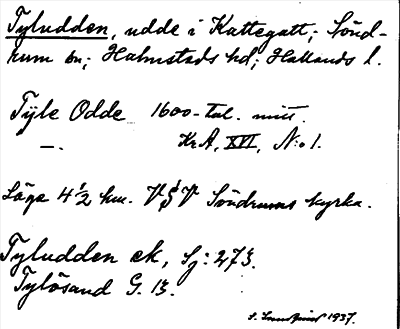 Tyludden, udde i Kattegatt; Sönd-
rum sn; Halmstads hd; Hallands l.
Tÿle Odde 1600-tal. mitt.
—. KrA, XVI, N:o 1.
Läge 4 1/2 km. V§V Söndrums kyrka.
Tyludden ek, Sj: 273.
Tylösand G. 13.
1937.